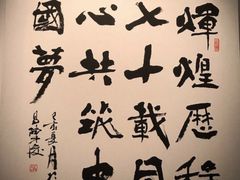 輝煌歷程
七十載同
心共筑中
國夢
己亥夏月